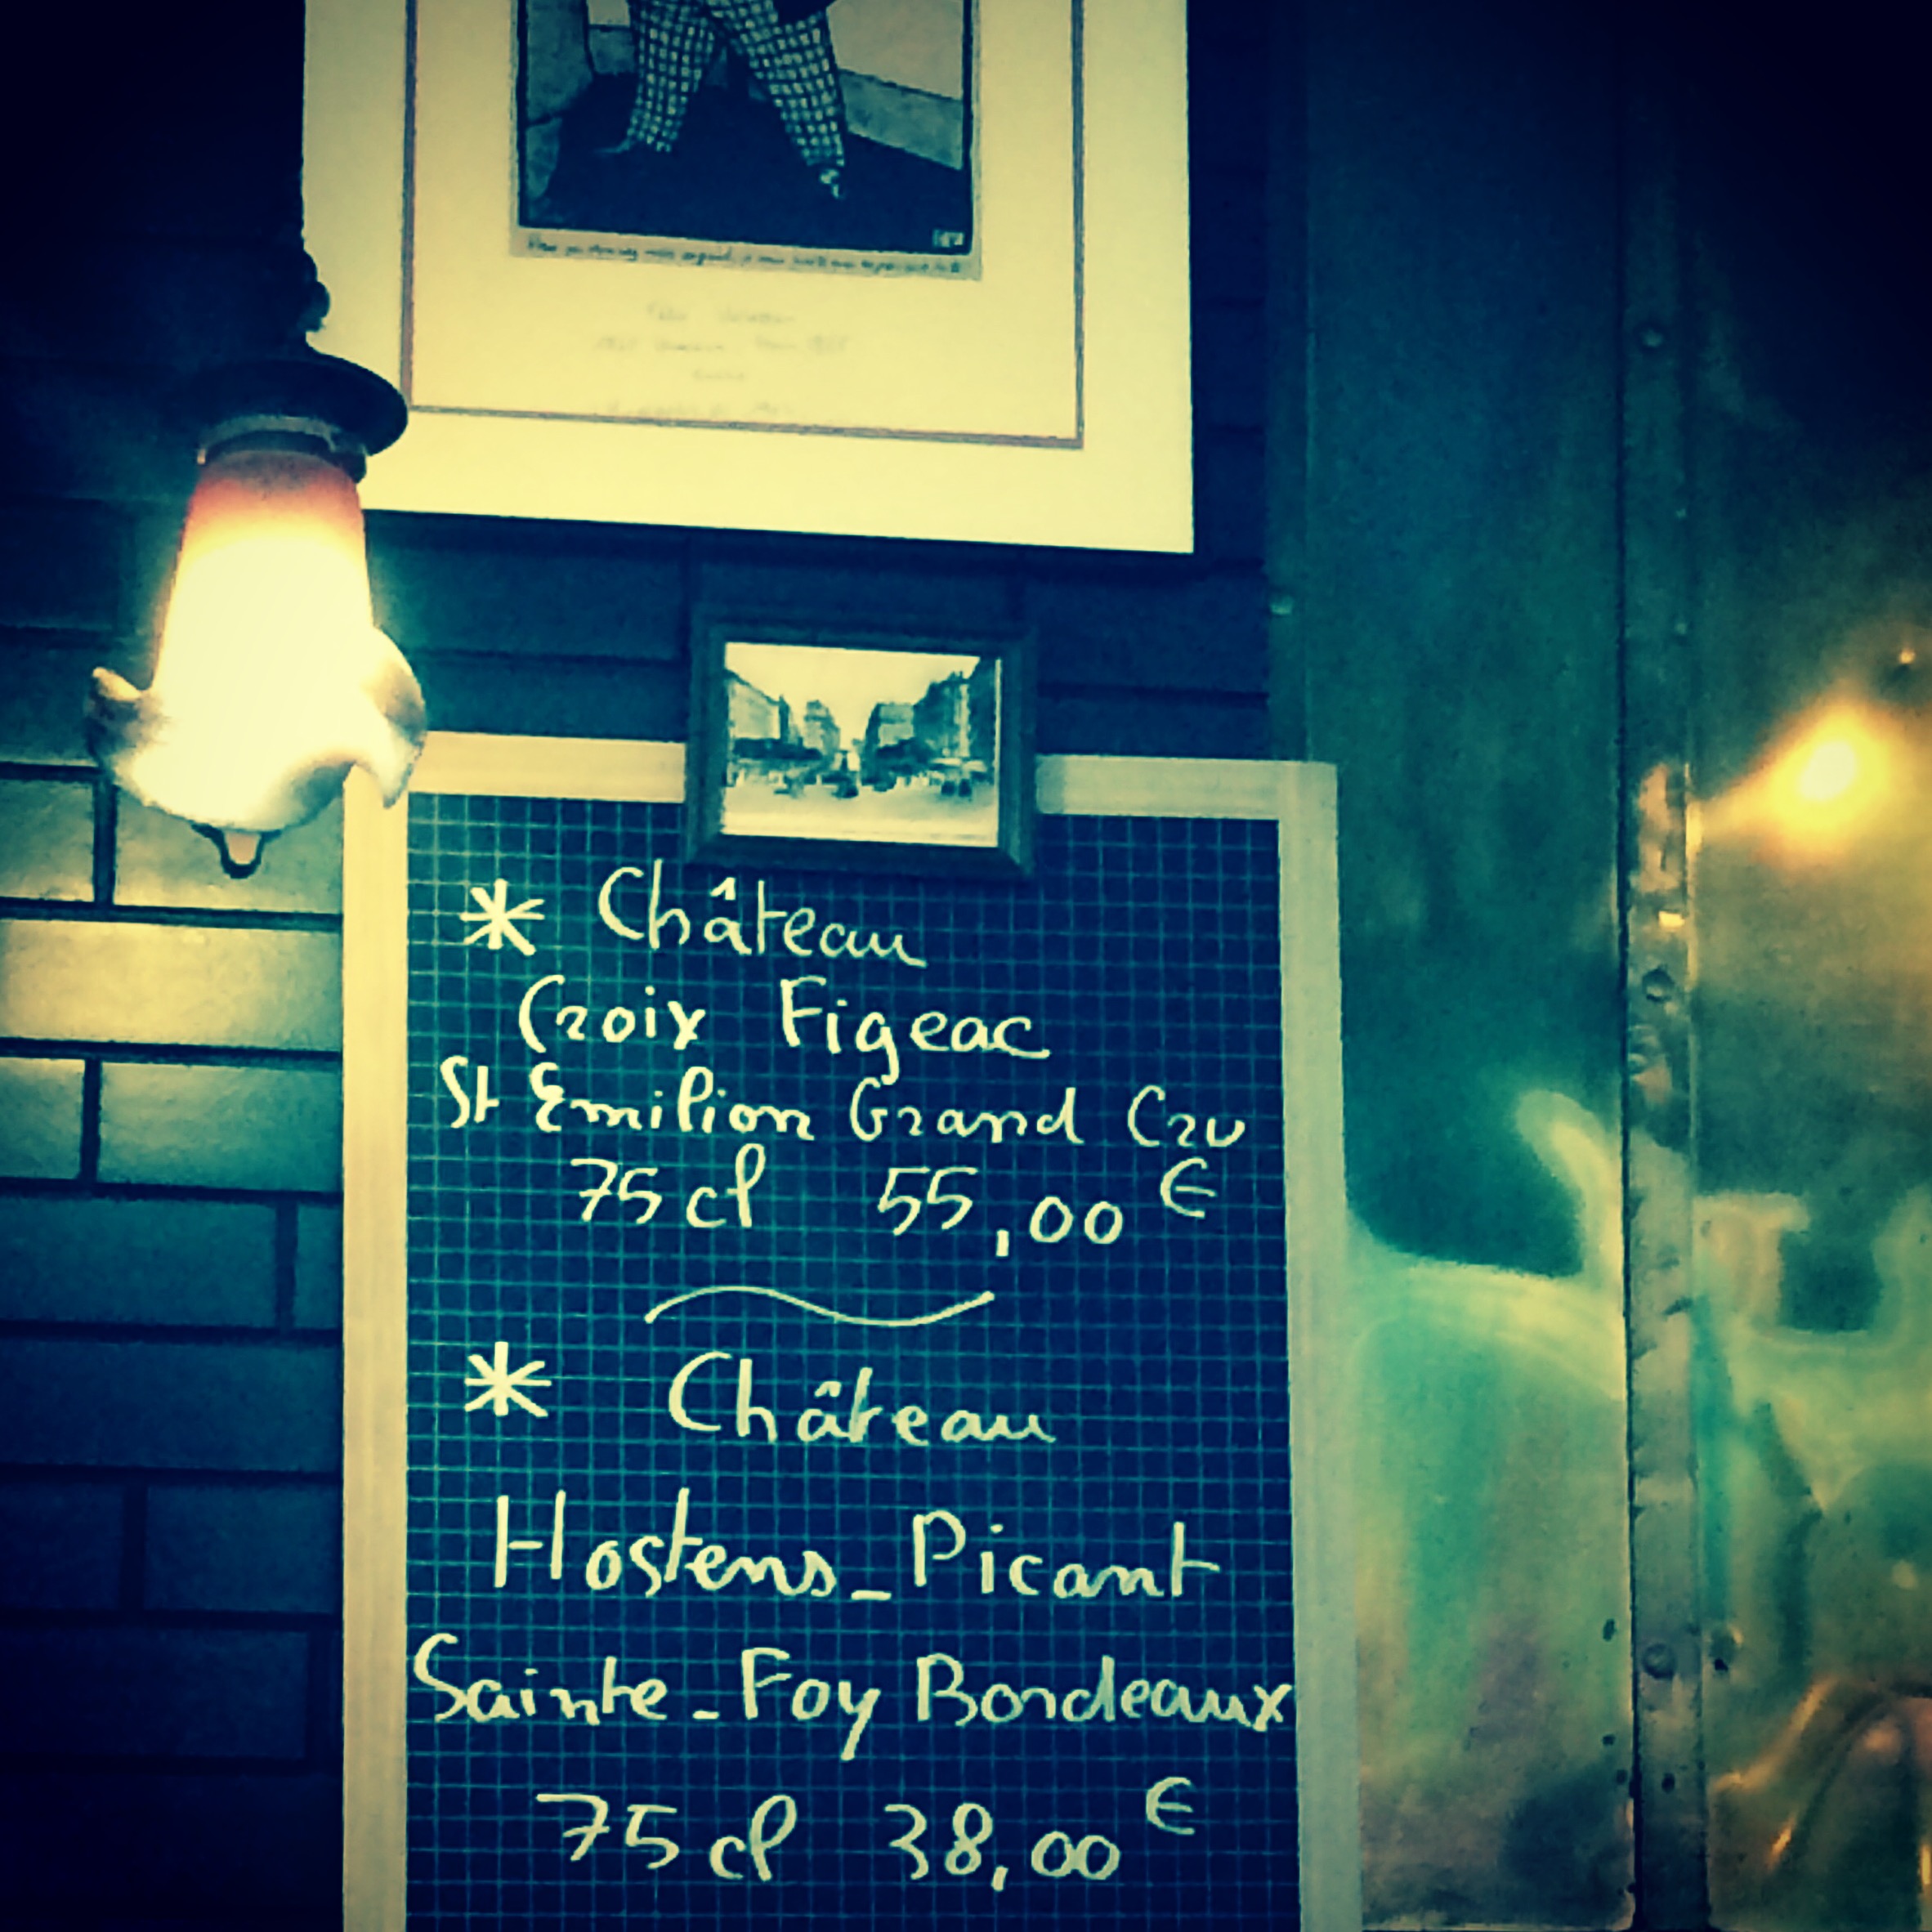 * Château
Croix Figeac
St Emilion Grand Cru
75 cl 55,00 €
* Château
Hostens_Picant
Sainte_Foy Bordeaux
75 cl 38,00 €